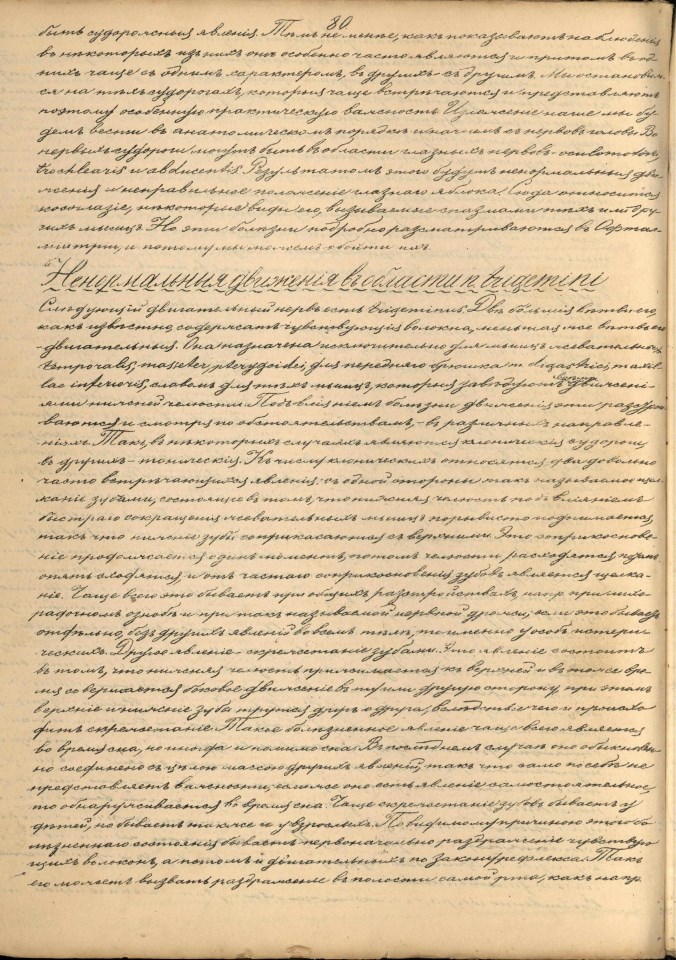 80
быть судорожныя явленія. Тѣмъ не менѣе, какъ показываютъ наблюденія
въ некоторыхъ изъ нихъ онѣ особенно часто являются и притомъ въ од-
нихъ чаще съ однимъ характеромъ, въ другихъ – съ другимъ. Мы остановим-
ся на тѣхъ судорогахъ, которыя чаще встрѣчаются и представляютъ
поэтому особенную практическую важность. Изложеніе наше мы бу-
демъ вести въ анатомическомъ порядкѣ и начнемъ съ нервовъ головы. Во
первыхъ судороги могутъ быть въ области глазныхъ нервовъ – oculomotorii,
trochlearis и abducentis. Результатомъ этого будутъ ненормальныя дви-
женія и неправильное положеніе глазнаго яблока. Сюда относится
косоглазіе, нѣкоторые виды его, вызываемые спазмами тѣхъ или дру-
гихъ мышцъ. Но эти болѣзни подробно разсматриваются въ Офтал-
міатріи, и потому мы можемъ обойти ихъ.
Ненормальныя движенія въ области n. trigemini
Слѣдующій двигательный нервъ есть trigeminus. Двѣ большія вѣтви его,
какъ извѣстно, содержатъ чувствующія волокна, меньшая же вѣтвь его
– двигательныя. Она назначена исключительно для мышцъ жевательныхъ:
temporalis, masseter, pterygoidei, для передняго брюшка m. digastrici, maxil-
lae inferioris, словомъ для тѣхъ мышцъ, которыя завѣдуютъ движені-
ями нижней челюсти. Подъ вліяніемъ болѣзни движенія эти разстраи-
ваются и смотря по обстоятельствамъ – въ различныхъ направле-
ніяхъ. Такъ, въ нѣкоторыхъ случаяхъ являются клоническія судороги,
въ другихъ – тоническія. Къ числу клоническихъ относятся два довольно
часто встрѣчающихся явленія: съ одной стороны такъ называемое щел-
каніе зубами, состоящее въ томъ, что нижняя челюсть подъ вліяніемъ
быстраго сокращенія жевательныхъ мышцъ порывисто поднимается,
такъ что нижніе зубы соприкасаются съ верхними. Это соприкосно-
веніе продолжается одинъ моментъ, потомъ челюсти расходятся и
опять сходятся, и отъ частаго соприкосновенія зубовъ является щелка-
ніе. Чаще всего это бываетъ при общихъ разстройствахъ, напр. при лихо-
радочномъ ознобѣ и при такъ называемой нервной дрожи; если это бываетъ
отдѣльно, безъ другихъ явленій во всемъ тѣлѣ, то именно у особъ истери-
ческихъ. Другое явленіе – скрежетаніе зубами. Это явленіе состоитъ
въ томъ, что нижняя челюсть прижимается къ верхней и въ тоже вре-
мя совершается боковое движеніе въ ту или другую сторону, при этомъ
верхніе и нижніе зубы трутся другъ о друга, вслѣдствіе чего и происхо-
дитъ скрежетаніе. Такое болѣзненное явленіе чаще всего является
во время сна, но иногда и помимо сна. Въ послѣднемъ случаѣ оно обыкновен-
но соединено съ цѣлою массою другихъ явленій, такъ что само по себѣ не
представляетъ важности; если же оно есть явленіе самостоятельное,
то обнаруживается во время сна. Чаще скрежетаніе зубовъ бываетъ у
дѣтей, но бываетъ также и у взрослыхъ. По видимому причиною этого бо-
лѣзненнаго состоянія бываетъ первоначально раздраженіе чувствую-
щихъ волоконъ, а потомъ и двигательныхъ по закону рефлекса. Такъ
его можетъ вызвать раздраженіе въ полости самой рта, какъ напр.